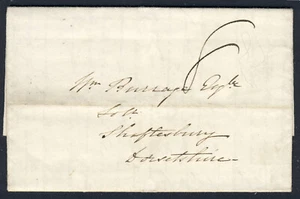 Wm Burrage Esqre
Solr
Shaftesbury
Dorsetshire